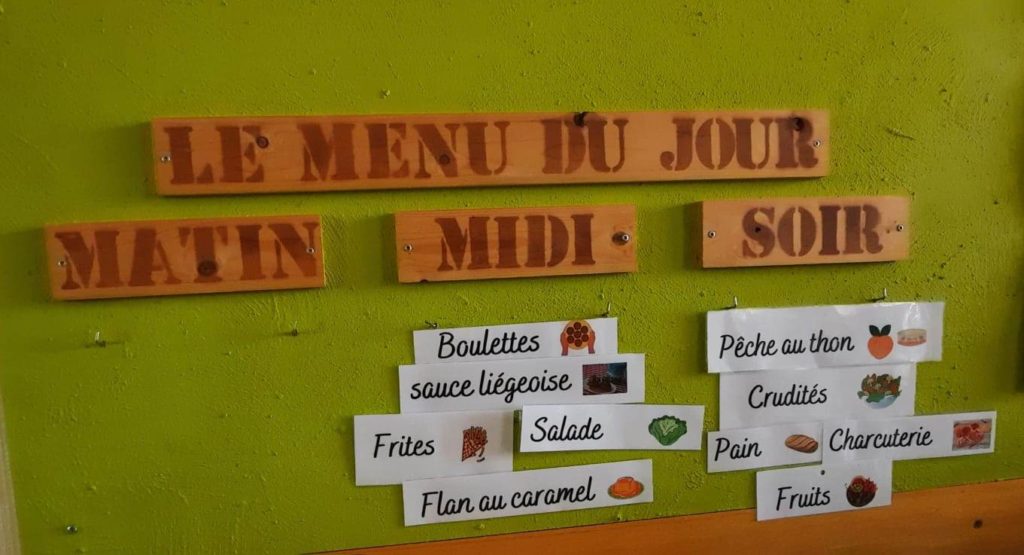 LE MENU DU JOUR
MATIN
MIDI
SOIR
Boulettes
sauce liégeoise
Frites
Salade
Flan au caramel
Pêche au thon
Crudités
Pain
Charcuterie
Fruits